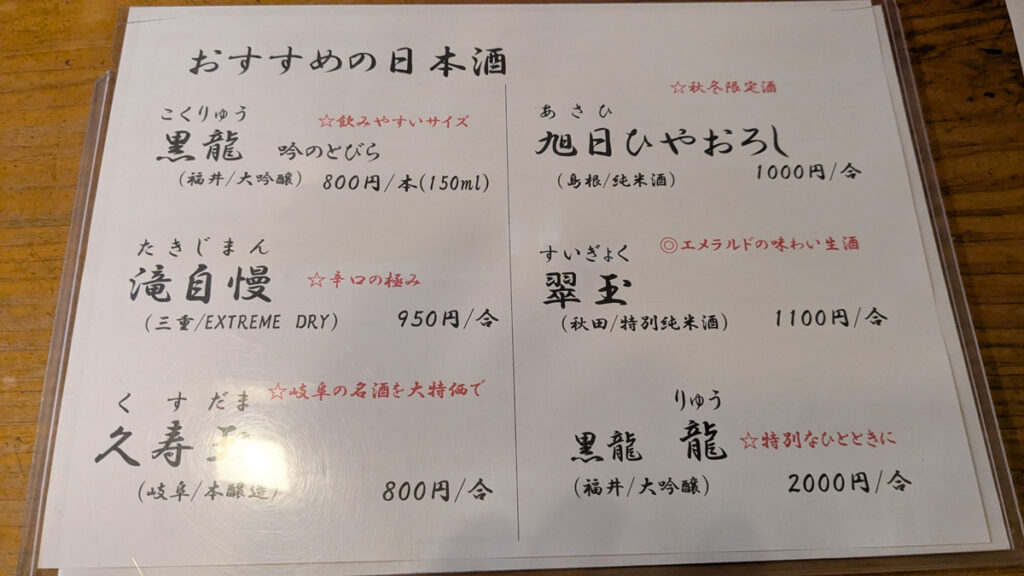 おすすめの日本酒
こくりゅう ☆飲みやすいサイズ
黒龍 吟のとびら
(福井/大吟醸) 800円/本(150ml)
たきじまん
滝自慢 ☆辛口の極み
(三重/EXTREME DRY) 950円/合
くすだま ☆岐阜の名酒を大特価で
久寿玉
(岐阜/本醸造) 800円/合
☆秋冬限定酒
あさひ
旭日ひやおろし
(島根/純米酒) 1000円/合
すいぎょく ◎エメラルドの味わい生酒
翠玉
(秋田/特別純米酒) 1100円/合
りゅう
黒龍 龍 ☆特別なひとときに
(福井/大吟醸) 2000円/合